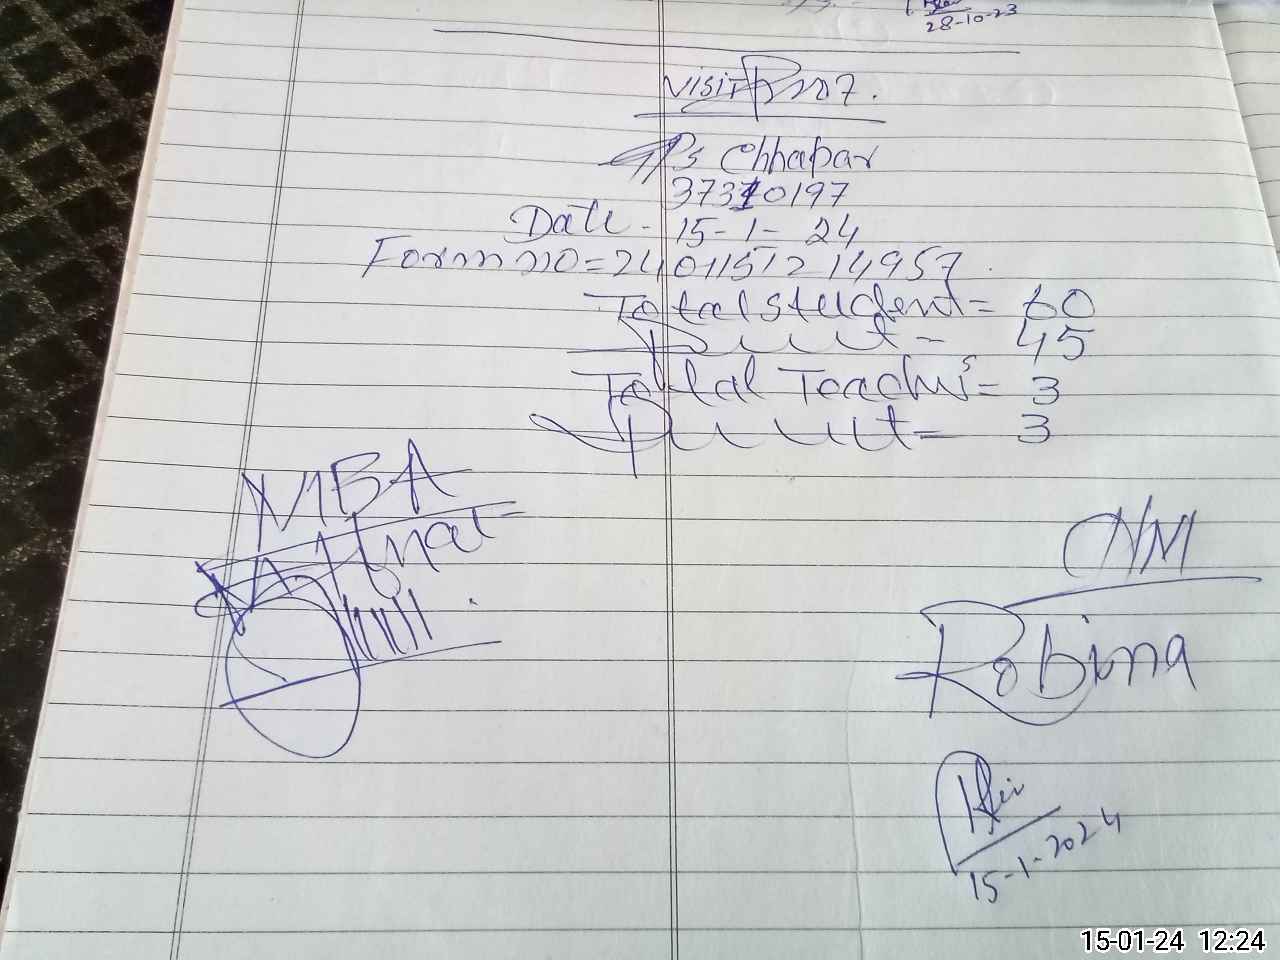 28-10-23
Visit
GPS Chhapar
37310197
Date - 15-1-24
Form no = 24011512 14957
Total student = 60
Present - 45
Total Teachers = 3
Present - 3
MBA
CNM
Robina
15-1-2024
15-01-24 12:24